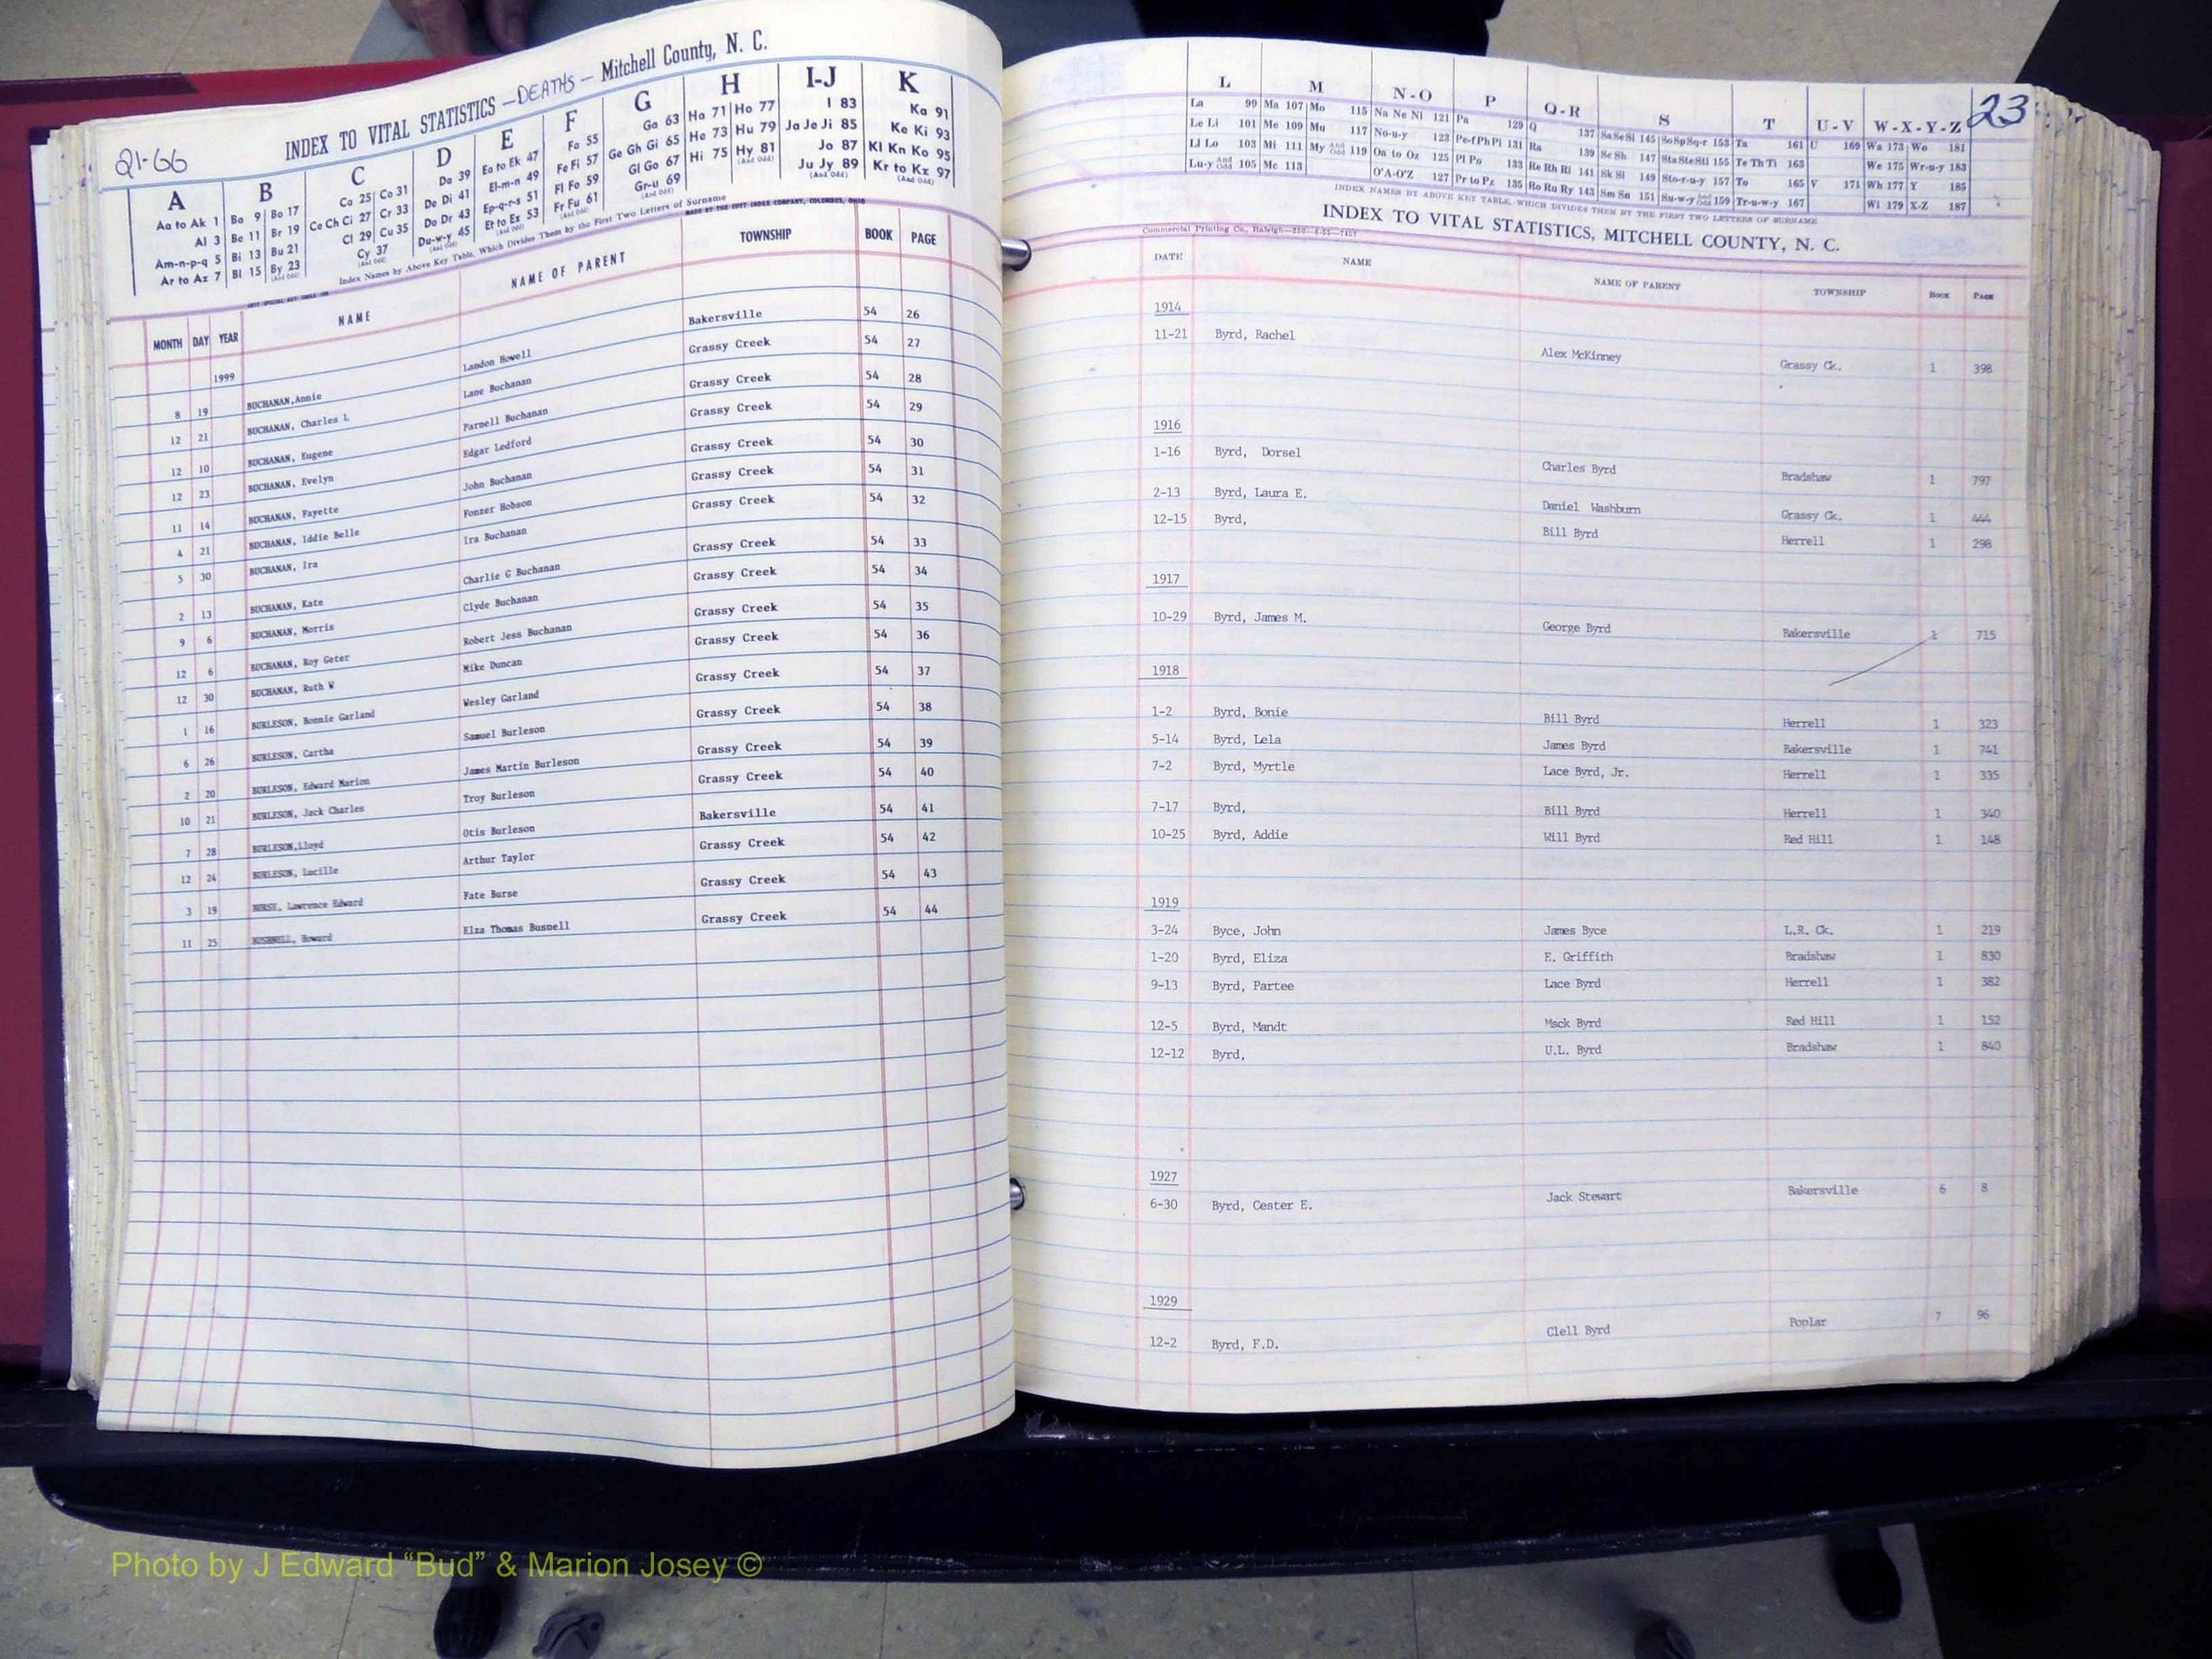 21-66
INDEX TO VITAL STATISTICS — DEATHS — Mitchell County, N. C.
A B C D E F G H I-J K
Aa to Ak 1 Ba 9 Bo 17 Ca 25 Co 31 Da 39 Ea to Ek 47 Fa 55 Ga 63 Ha 71 Ho 77 I 83 Ka 91
Al 3 Be 11 Br 19 Ce Ch Ci 27 Cr 33 De Di 41 El-m-n 49 Fe Fi 57 Ge Gh Gi 65 He 73 Hu 79 Ja Je Ji 85 Ke Ki 93
Am-n-p-q 5 Bi 13 Bu 21 Cl 29 Cu 35 Do Dr 43 Ep-q-r-s 51 Fl Fo 59 Gl Go 67 Hi 75 Hy 81 (And Odd) Jo 87 Kl Kn Ko 95
Ar to Az 7 Bl 15 By 23 (And Odd) Cy 37 (And Odd) Du-w-y 45 (And Odd) Et to Ez 53 (And Odd) Fr Fu 61 (And Odd) Gr-u 69 (And Odd) Ju Jy 89 (And Odd) Kr to Kz 97 (And Odd)
Index Names by Above Key Table, Which Divides Them by the First Two Letters of Surname
MADE BY THE COTT INDEX COMPANY, COLUMBUS, OHIO
MONTH DAY YEAR NAME NAME OF PARENT TOWNSHIP BOOK PAGE
1999
8 19 BUCHANAN, Annie Landon Howell Bakersville 54 26
12 21 BUCHANAN, Charles L Lane Buchanan Grassy Creek 54 27
12 10 BUCHANAN, Eugene Parnell Buchanan Grassy Creek 54 28
12 23 BUCHANAN, Evelyn Edgar Ledford Grassy Creek 54 29
11 14 BUCHANAN, Fayette John Buchanan Grassy Creek 54 30
4 21 BUCHANAN, Iddie Belle Fonzer Hobson Grassy Creek 54 31
5 30 BUCHANAN, Ira Ira Buchanan Grassy Creek 54 32
2 13 BUCHANAN, Kate Charlie G Buchanan Grassy Creek 54 33
9 6 BUCHANAN, Morris Clyde Buchanan Grassy Creek 54 34
12 6 BUCHANAN, Roy Geter Robert Jess Buchanan Grassy Creek 54 35
12 30 BUCHANAN, Ruth W Mike Duncan Grassy Creek 54 36
1 16 BURLESON, Bonnie Garland Wesley Garland Grassy Creek 54 37
6 26 BURLESON, Cartha Samuel Burleson Grassy Creek 54 38
2 20 BURLESON, Edward Marion James Martin Burleson Grassy Creek 54 39
10 21 BURLESON, Jack Charles Troy Burleson Grassy Creek 54 40
7 28 BURLESON, Lloyd Otis Burleson Bakersville 54 41
12 24 BURLESON, Lucille Arthur Taylor Grassy Creek 54 42
3 19 BURSE, Lawrence Edward Fate Burse Grassy Creek 54 43
11 25 BUSHNELL, Howard Elza Thomas Busnell Grassy Creek 54 44
L M N-O P Q-R S T U-V W-X-Y-Z 23
La 99 Ma 107 Mo 115 Na Ne Ni 121 Pa 129 Q 137 Sa Se Si 145 So Sp Sq-r 153 Ta 161 U 169 Wa 173 Wo 181
Le Li 101 Me 109 Mu 117 No-u-y 123 Pe-f Ph Pi 131 Ra 139 Sc Sh 147 Sta Ste Sti 155 Te Th Ti 163 We 175 Wr-u-y 183
Ll Lo 103 Mi 111 My And Odd 119 On to Oz 125 Pl Po 133 Re Rh Ri 141 Sk Sl 149 Sto-r-u-y 157 To 165 V 171 Wh 177 Y 185
Lu-y And Odd 105 Mc 113 O'A-O'Z 127 Pr to Pz 135 Ro Ru Ry 143 Sm Sn 151 Su-w-y And Odd 159 Tr-u-w-y 167 Wi 179 X-Z 187
INDEX NAMES BY ABOVE KEY TABLE, WHICH DIVIDES THEM BY THE FIRST TWO LETTERS OF SURNAME
INDEX TO VITAL STATISTICS, MITCHELL COUNTY, N. C.
Commercial Printing Co., Raleigh
DATE NAME NAME OF PARENT TOWNSHIP BOOK PAGE
1914
11-21 Byrd, Rachel Alex McKinney Grassy Ck. 1 398
1916
1-16 Byrd, Dorsel Charles Byrd Bradshaw 1 797
2-13 Byrd, Laura E. Daniel Washburn Grassy Ck. 1 444
12-15 Byrd, Bill Byrd Herrell 1 298
1917
10-29 Byrd, James M. George Byrd Bakersville 1 715
1918
1-2 Byrd, Bonie Bill Byrd Herrell 1 323
5-14 Byrd, Lela James Byrd Bakersville 1 741
7-2 Byrd, Myrtle Lace Byrd, Jr. Herrell 1 335
7-17 Byrd, Bill Byrd Herrell 1 340
10-25 Byrd, Addie Will Byrd Red Hill 1 148
1919
3-24 Byce, John James Byce L.R. Ck. 1 219
1-20 Byrd, Eliza E. Griffith Bradshaw 1 830
9-13 Byrd, Partee Lace Byrd Herrell 1 382
12-5 Byrd, Mandt Msck Byrd Red Hill 1 152
12-12 Byrd, U.L. Byrd Bradshaw 1 840
1927
6-30 Byrd, Cester E. Jack Stewart Bakersville 6 8
1929
12-2 Byrd, F.D. Clell Byrd Poplar 7 96
Photo by J Edward “Bud” & Marion Josey ©